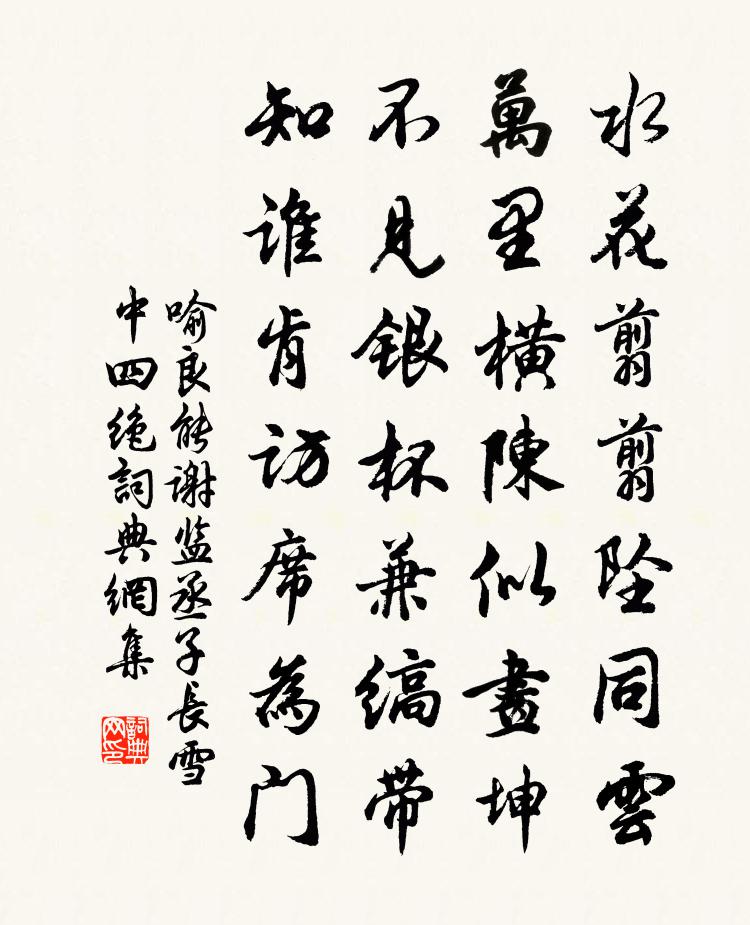 水花剪剪坠同雲
萬里橫陳似畫坤
不見銀杯兼縞带
知誰肯訪席為門
喻良能谢监丞子長雪
中四绝詞典網集
詞典网印